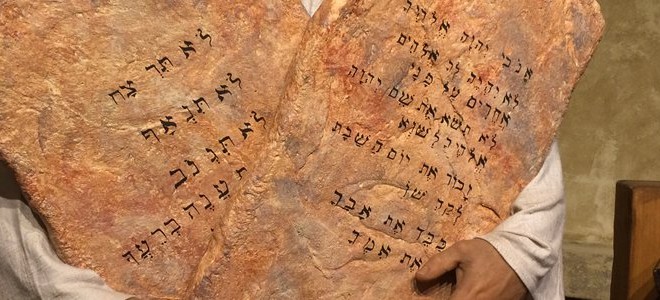 אנכי יהוה אלהיך
לא יהיה לך אלהים
אחרים על פני
לא תשא את שם יהוה
אלהיך לשוא
זכור את יום השבת
לקדשו
כבד את אביך
את אמך
לא תרצח
לא תנאף
לא תגנב
תענה ברעך